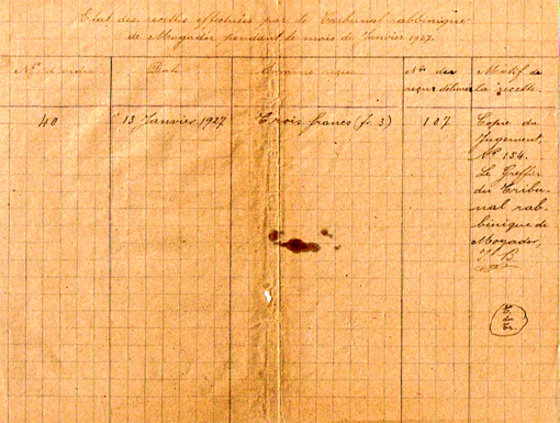 Etat des recettes effectuées par le Tribunal rabbinique
de Mogador pendant le mois de Janvier 1927.
Nos d'ordre Date Somme reçue Nos des Motif de
reçus délivrés la recette.
40 13 Janvier 1927 Trois francs (fr. 3) 107. Copie du
Jugement,
No 154.
Le Greffier
du Tribu-
nal rab-
binique de
Mogador,
du
Tr.